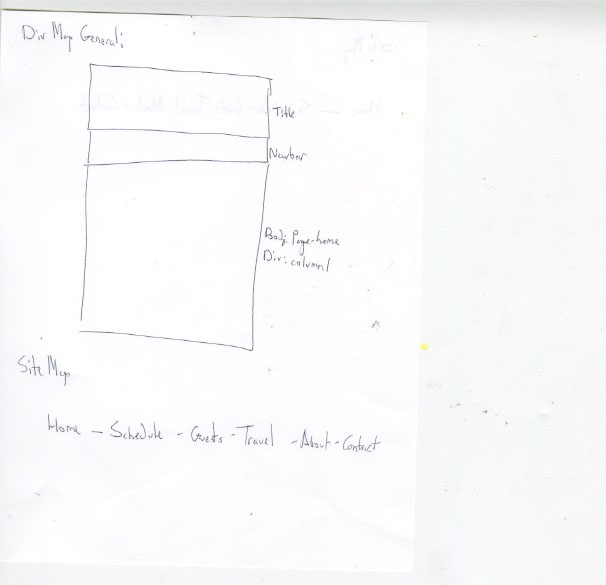 Div Map General:
Title
Navbar
Body: Page-home
Div: column1
Site Map
Home - Schedule - Guests - Travel - About - Contact